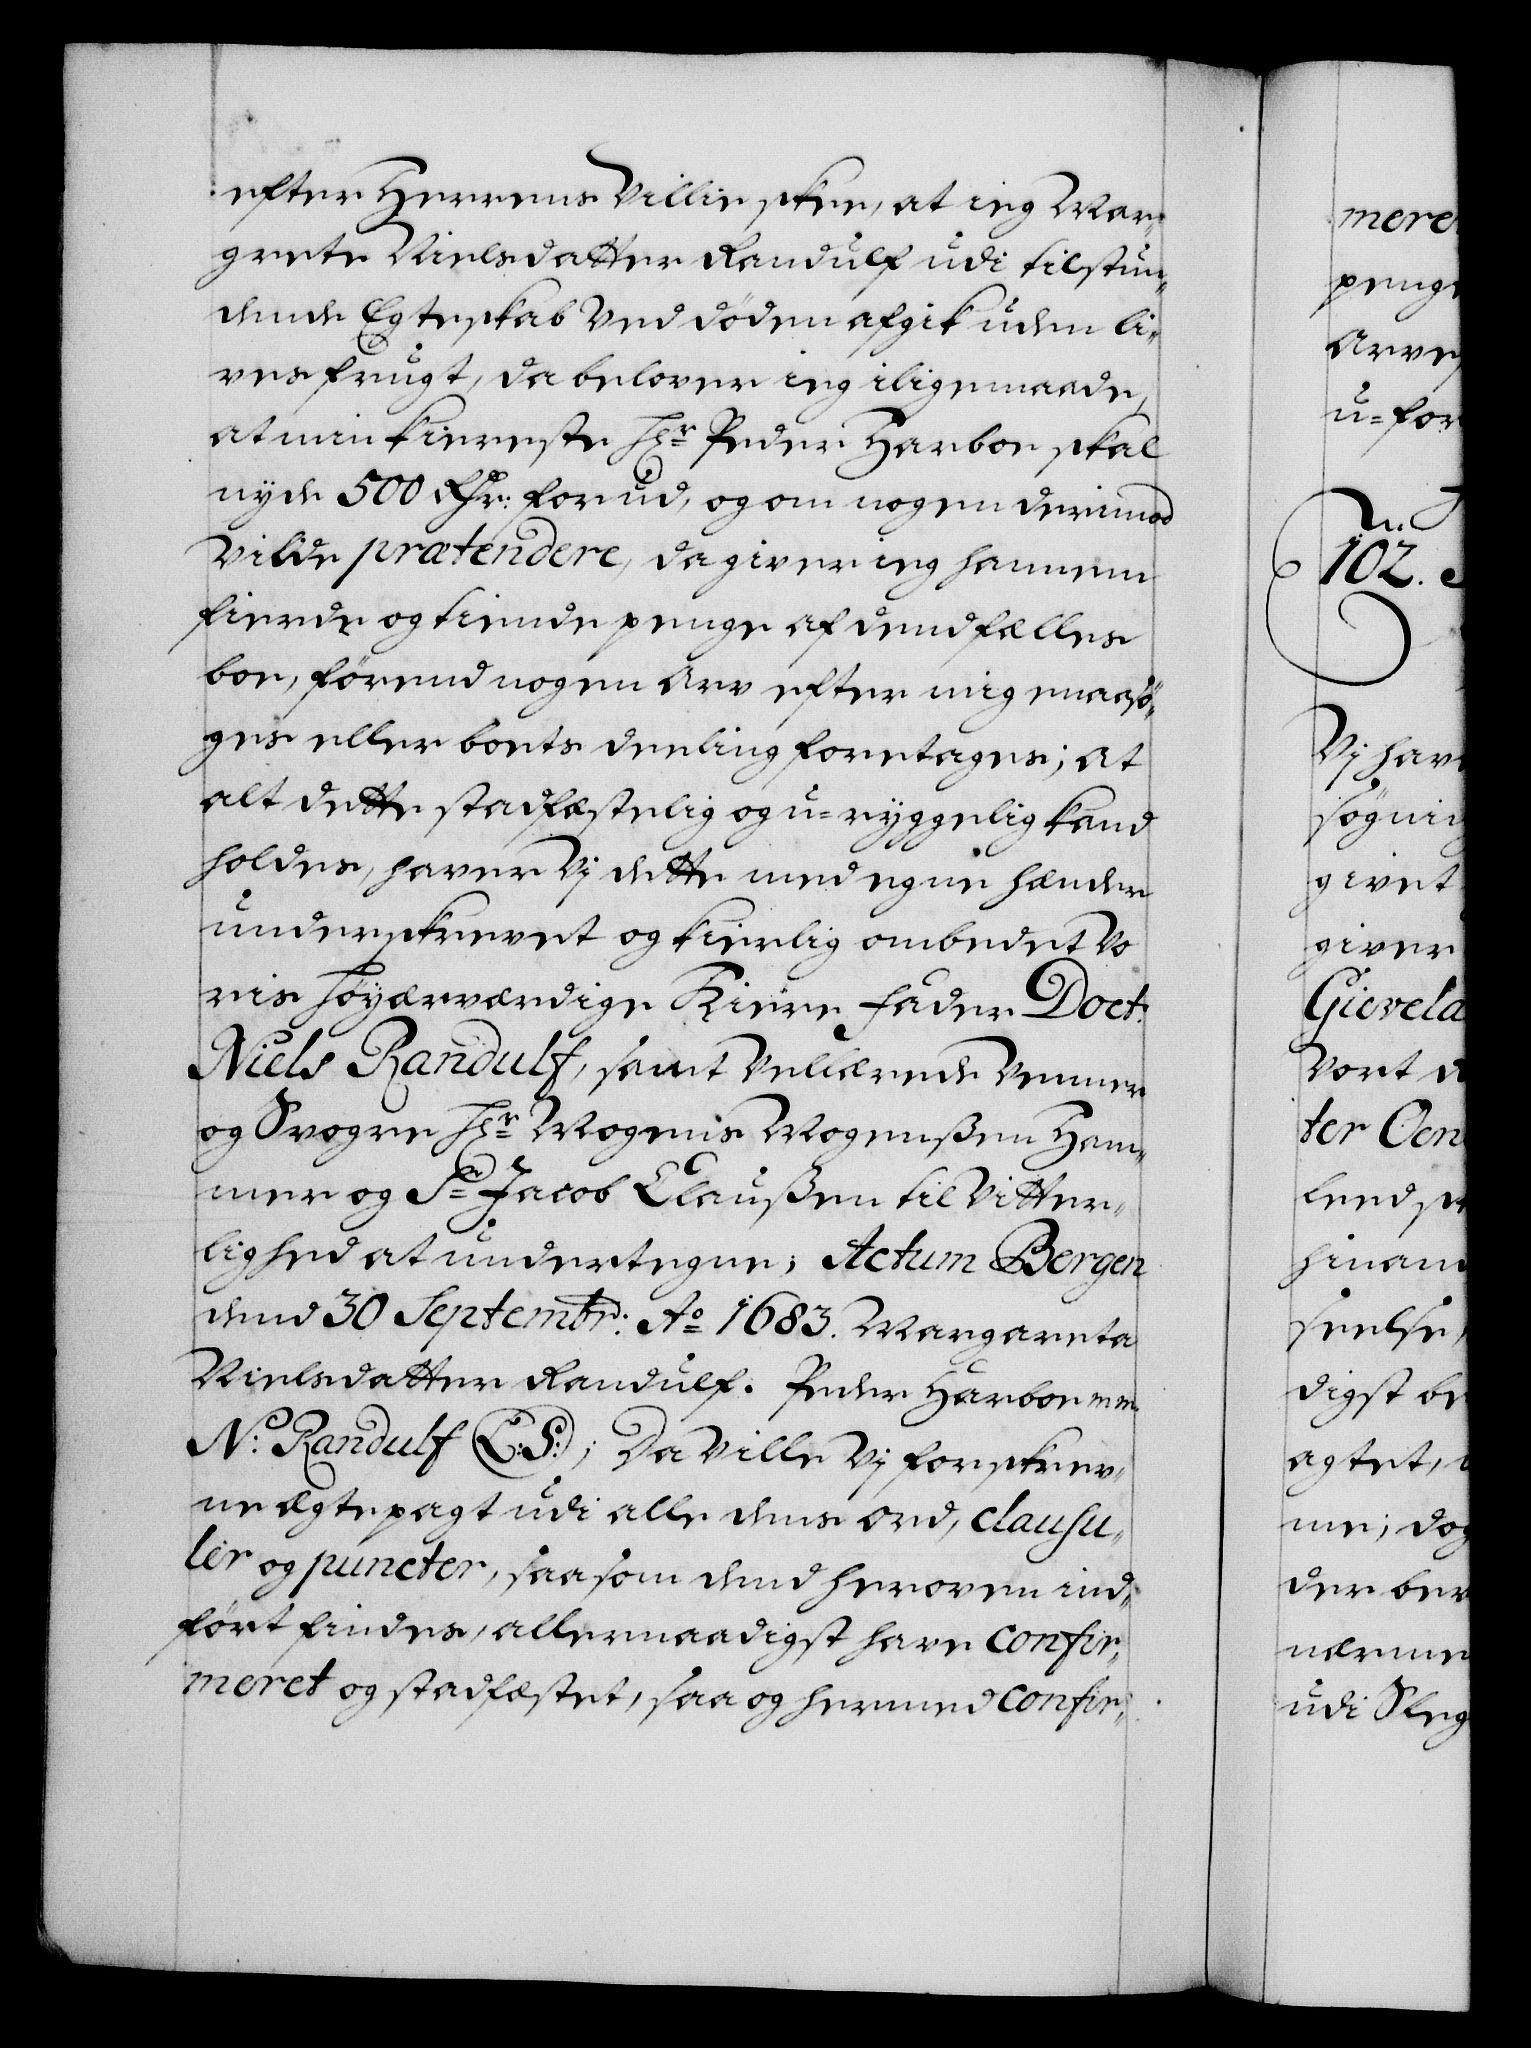 efter Herrens Villie skee, at ieg Mar-
grete Nielsdatter Randulf udi tilstun-
dende Egteskab ved døden afgik uden li-
ves frugt, da belover ieg iligemaade,
at min kiereste Hr Peder Harboe skal
nyde 500 Rdr: forud, og om nogen derimod
vilde prætendere, da giver ieg hannem
fierde og tiende penge af dend fælles
boe, førend nogen Arv efter mig maa sö-
ges eller boets deeling foretages; At
alt dette stadfæstelig og u-ryggelig kand
holdes, haver Vj dette med egne hænder
underskrevet og kierlig ombedet Vo
ris høyærværdige Kiere fader Doct:
Niels Randulf, samt Vellærde Venner
og Svogre Hr Mogens Mogenßen Ham-
mer og Sr Jacob Claußen til Vitter-
lighed at undertegne; Actum Bergen
dend 30 Septembr: Ao 1683. Margareta
Nielsdatter Randulf. Peder Harboe mm.
N: Randulf (L:S:); Da Ville Vj forskrev-
ne Ægtepagt udi alle dens Ord, clausu-
ler og puncter, saasom dend heroven ind-
ført findes, allernaadigst have confir-
meret og stadfæstet, saa og hermed confir-
mere
penge
Arve
u-for
102.
Vj hav
søgni
givet
giver
Gievela
Vort
ter Oen
leedsa
hinan
seelse,
digst be
agtet,
me; dog
der ber
nærme
udi Sleg